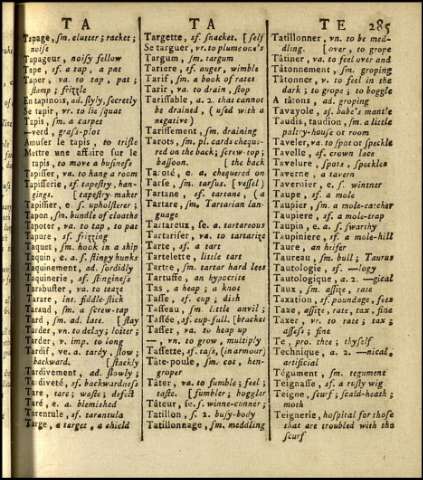 T A
T A
T E
285
Tapage, sm. clutter; racket;
noise
Tapageur, noisy fellow
Tape, sf. a tap, a pat
Taper, va. to tap; pat;
stamp; frizzle
En tapinois, ad. slyly, secretly
Se tapir, vr. to lie squat
Tapis, sm. a carpet
—verd, grass-plot
Amuser le tapis, to trifle
Mettre une affaire sur le
tapis, to move a business
Tapisser, va. to hang a room
Tapisserie, sf. tapestry, han-
gings. [tapestry-maker
Tapissier, e s. upholsterer;
Tapon, sm. bundle of cloaths
Tapoter, va. to tap, to pat
Tapure, sf. frizzing
Taquet, sm. hook in a ship
Taquin, e. a. s. stingy hunks
Taquinement, ad. sordidly
Taquinerie, sf. stinginess
Tarabuster, va. to teaze
Tarare, int. fiddle-stick
Taraud, sm. a screw-tap
Tard, sm. ad. late. [stay
Tarder, vn. to delay; loiter;
Tarder, v. imp. to long
Tardif, ve. a. tardy, slow;
backward. [slackly
Tardivement, ad. slowly;
Tardiveté, sf. backwardness
Tare, tare; waste; defect
Taré, e. a. blemished
Tarentule, sf. tarantula
Targe, a target, a shield
Targette, sf. snacket. [self
Se targuer, vr. to plume one's
Targum, sm. targum
Tariere, sf. auger, wimble
Tarif, sm. a book of rates
Tarir, va. to drain, stop
Tarissable, a. 2. that cannot
be drained, (used with a
negative)
Tarissement, sm. draining
Tarots, sm. pl. cards chequer-
red on the back; screw-top;
bassoon. [the back
Taroté, e. a. chequered on
Tarse, sm. tarsus. [vessel)
Tartane, sf. tartane, (a
Tartare, sm, Tartarian lan-
guage
Tartareux, se. a. tartareous
Tartariser, va. to tartarize
Tarte, sf. a tart
Tartelette, little tart
Tartre, sm. tartar hard lees
Tartuffe, an hypocrite
Tas, a heap; a knot
Tasse, sf. cup; dish
Tasseau, sm. little anvil;
Tassée, sf. cup-full. [bracket
Tasser, va. to heap up
—, vn. to grow, multiply
Tassette, sf. tass, (in armour)
Tâte-poule, sm. cot, hen-
groper
Tâter, va. to fumble; feel;
taste. [fumbler; boggler
Tâteur, se. s. winne-conner;
Tatillon, s. 2. busy-body
Tatillonnage, sm. meddling
Tatillonner, vn. to be med-
dling. [over, to grope
Tâtiner, va. to feel over and
Tâtonnement, sm. groping
Tâtonner, v. to feel in the
dark; to grope; to boggle
A tâtons, ad. groping
Tavayole, sf. babe's mantle
Taudis, taudion, sm. a little
paltry-house or room
Taveler, va. to spot or speckle
Tavelle, sf. crown lace
Tavelure, spots, speckles
Taverne, a tavern
Tavernier, e, s. vintner
Taupe, sf. a mole
Taupier, sm. a mole-catcher
Taupiere, sf. a mole-trap
Taupin, e. a. s. swarthy
Taupiniere, sf. a mole-hill
Taure, an heifer
Taureau, sm. bull; Taurus
Tautologie, sf. —logy
Tautologique, a. 2. —gical
Taux, sm. assize, rate
Taxation, sf. poundage, fees
Taxe, assize, rate, tax, fine
Taxer, vr. to rate; tax;
assess; fine
Te, pro. thee; thyself
Technique, a. 2. —nical,
artificial
Tégument, sm. tegument
Teignasse, sf. a rusty wig
Teigne, scurf; scald-heach;
moth
Teignerie, hospital for those
that are troubled with the
scurf